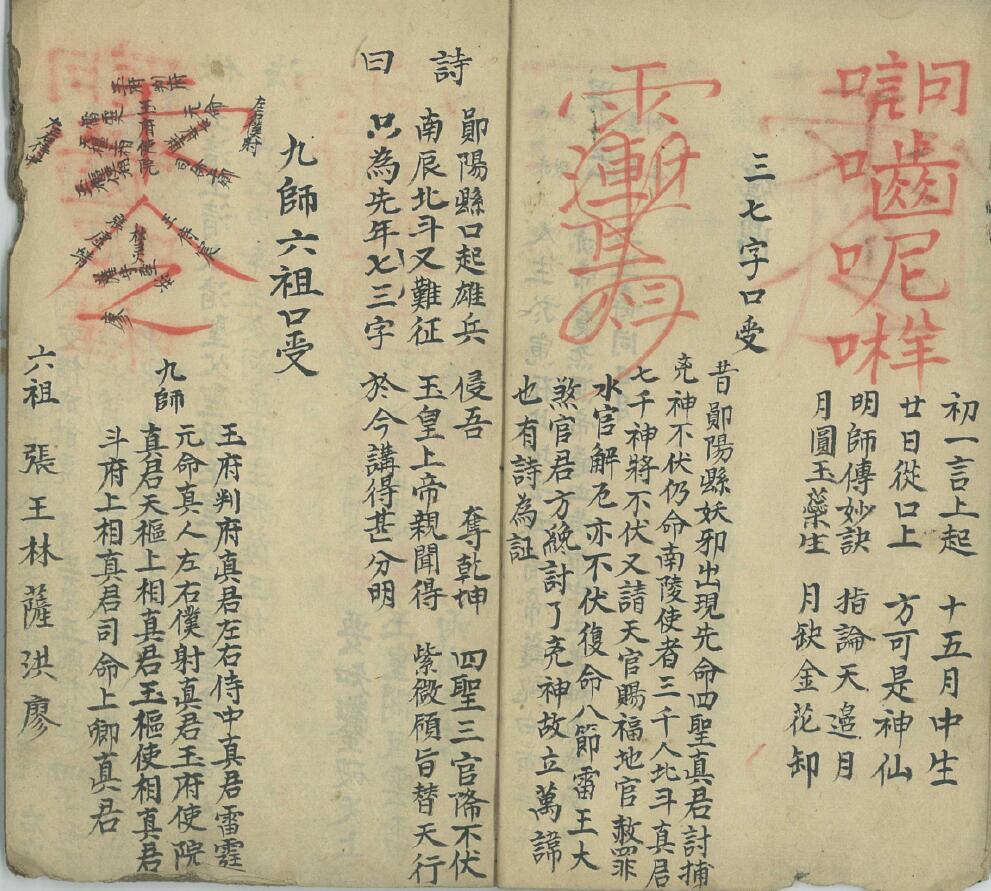 唁齒呢哶
初一言上起　十五月中生
廿日從口上　方可是神仙
明師傳妙訣　指論天邉月
月圓玉蘂生　月缺金花卸
三七字口受
昔鄖陽縣妖邪出現先命四聖真君討捕
兇神不伏仍命南陵使者三千人北斗真君
七千神將不伏又請天官賜福地官赦罪
水官解厄亦不伏復命八節雷王大
煞官君方纔討了兇神故立萬諱
也有詩為証
詩
曰
鄖陽縣口起雄兵　侵吾　奪乾坤　四聖三官㑹不伏
南辰北斗又難征　玉皇上帝親聞得　紫微頋旨替天行
只為先年七三字　於今講得甚分明
九師六祖口受
左右僕射
九師
玉府判府真君左右侍中真君雷霆
元命真人左右僕射真君玉府使院
真君天樞上相真君玉樞使相真君
斗府上相真君司命上卿真君
六祖　張王林薩洪廖